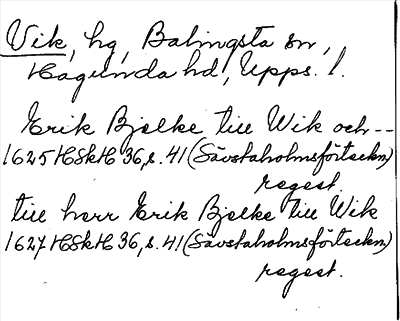 Vik, hg, Balingsta sn,
Hagunda hd, Upps. l.
Erik Bjelke till Wik och --
1625 HSkH 36, s. 41 (Sävstaholmsförteckn)
regest.
till herr Erik Bjelke till Wik
1627 HSkH 36, s. 41 (Sävstaholmsförteckn)
regest.